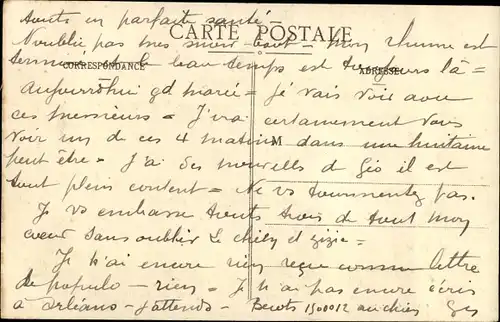 touts en parfaite santé =
CARTE POSTALE
N'oublie pas mon = mon rhume est
terminé le beau temps est toujours là =
CORRESPONDANCE
ADRESSE
aujourd'hui gd marée = je vais voir avec
ces messieurs = J'irai certainement vous
voir un de ces 4 matins dans une huitaine
peut être = J'ai des nouvelles de Géo il est
tout plein content = Ne vs tourmentez pas.
Je vs embrasse touts trois de tout mon
cœur sans oublier le et zizie =
Je n'ai encore rien reçu comme lettre
de populo - rien = Je n'ai pas encore écris
à Orléans - j'attends = Becots 1500012 au chien